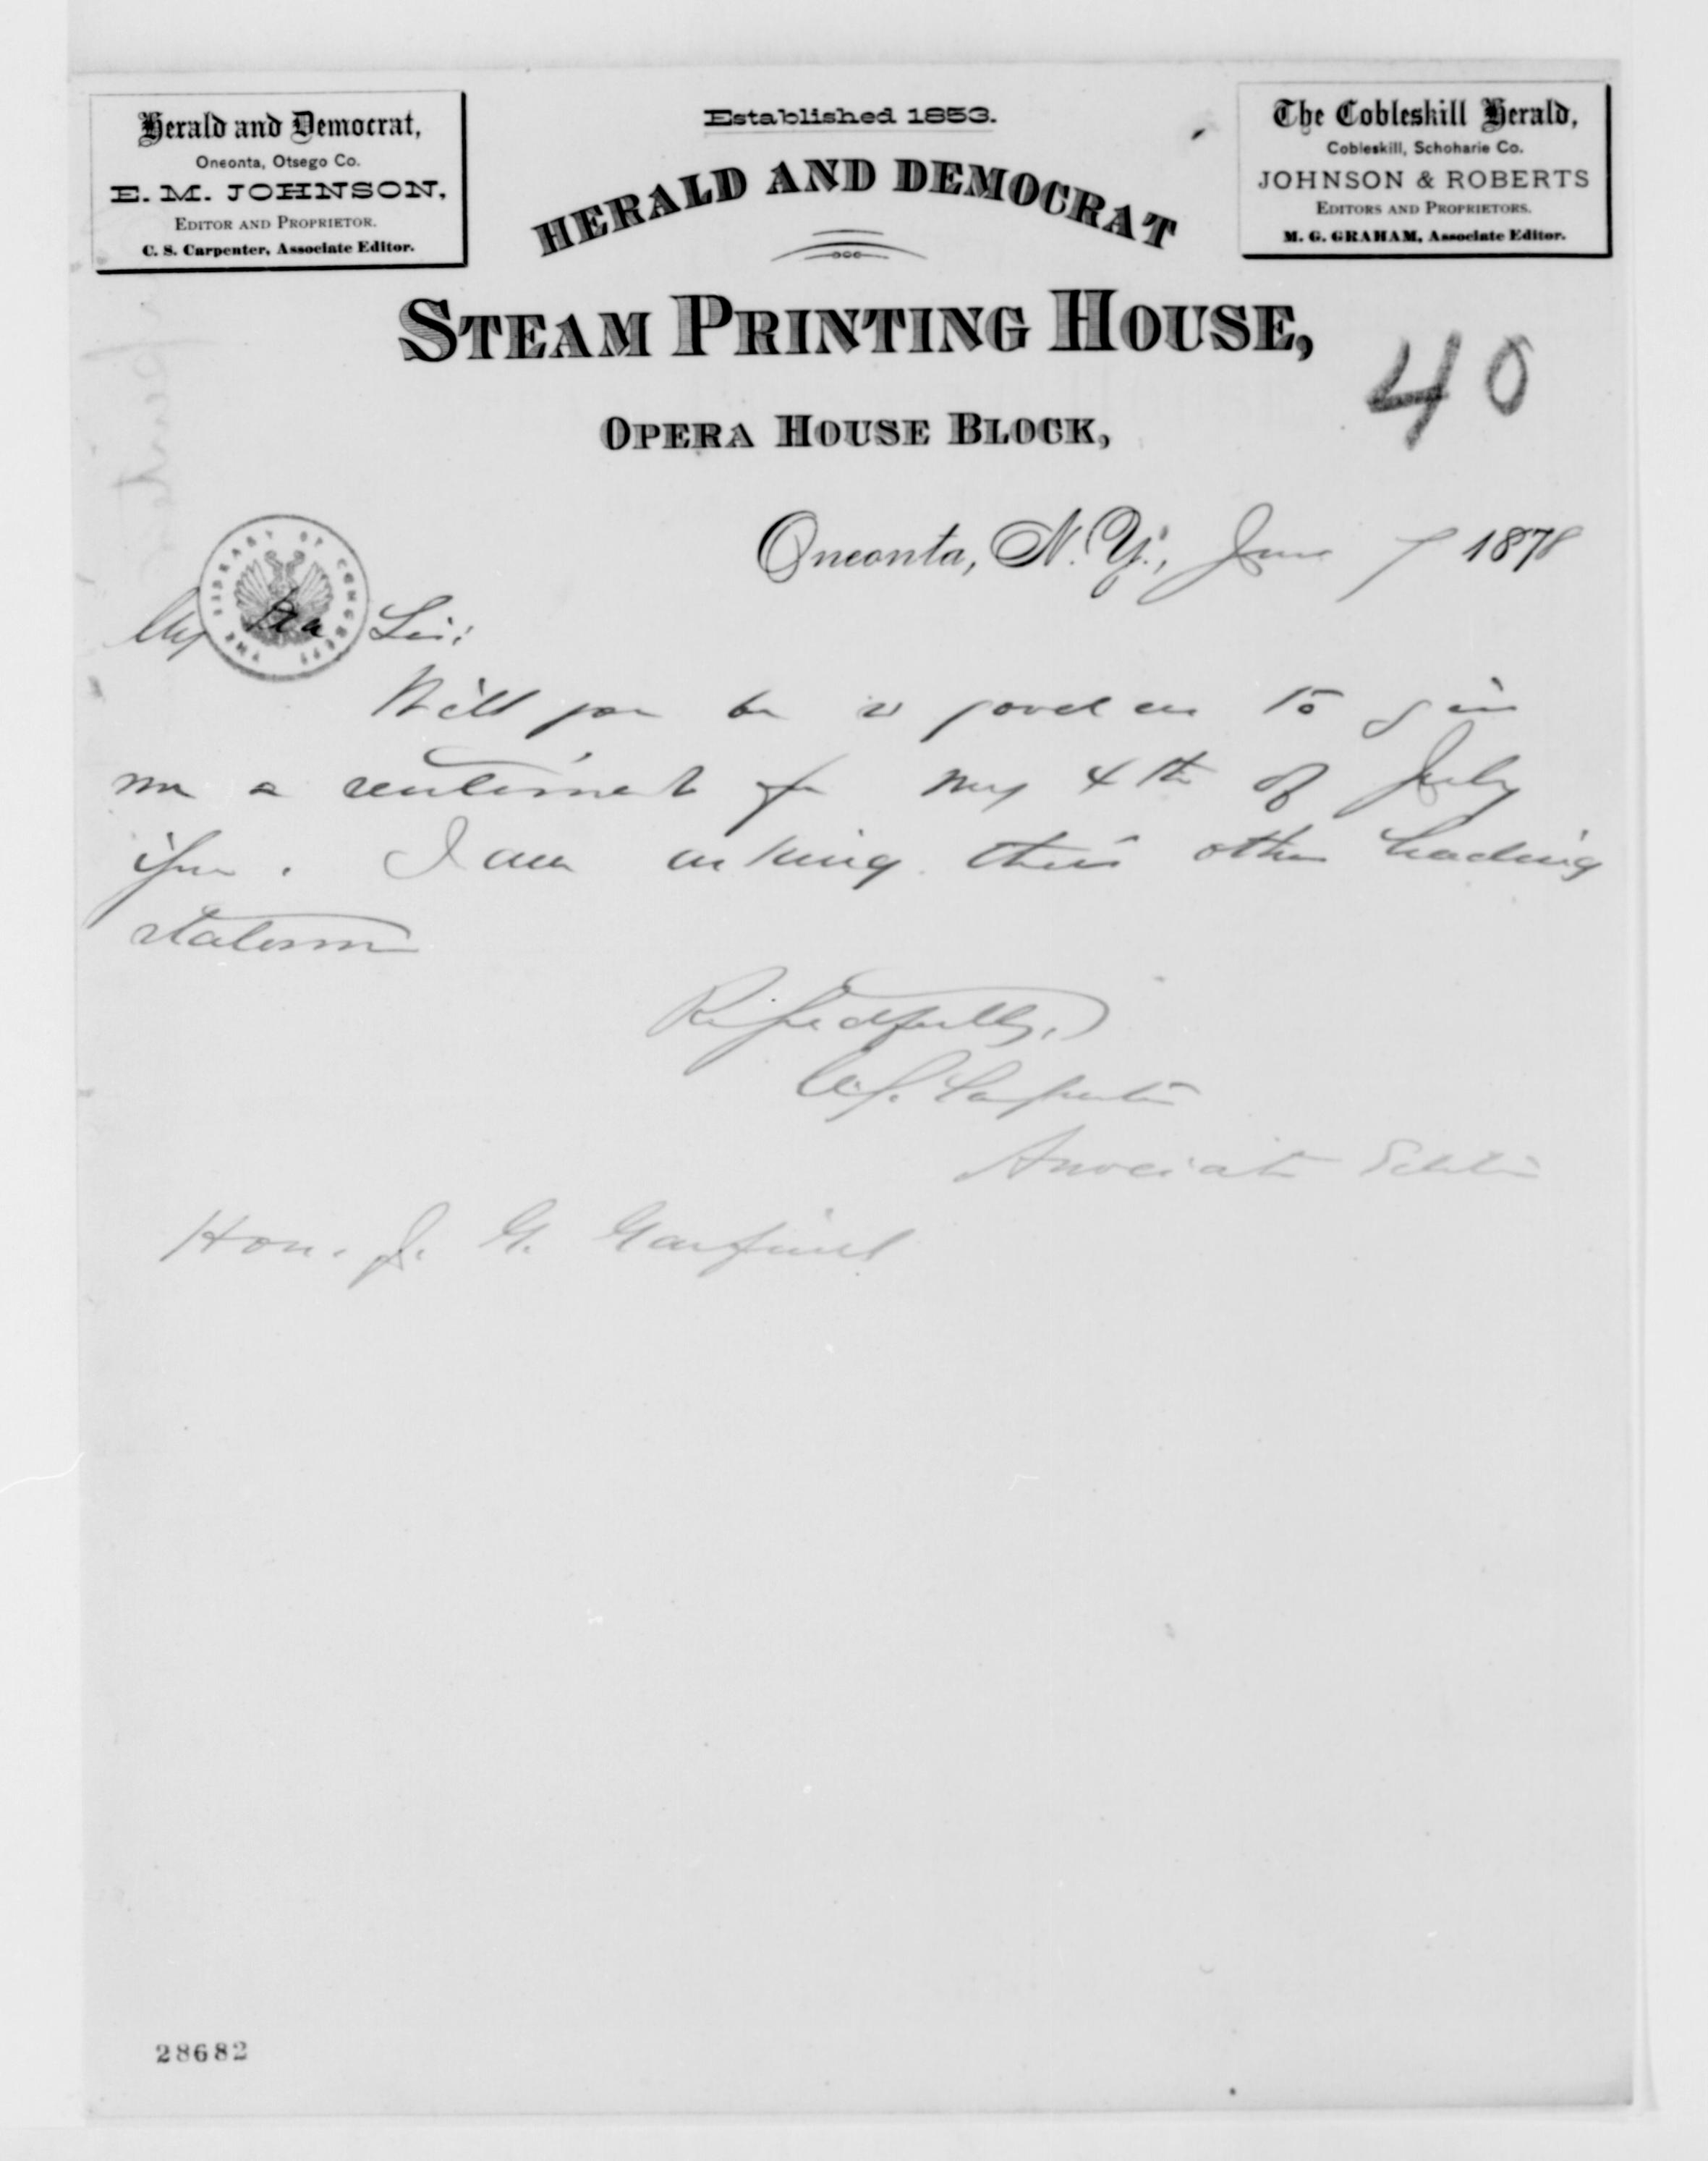 Herald and Democrat,
Oneonta, Otsego Co.
E. M. JOHNSON,
EDITOR AND PROPRIETOR.
C. S. Carpenter, Associate Editor.
Established 1853.
HERALD AND DEMOCRAT
STEAM PRINTING HOUSE,
OPERA HOUSE BLOCK,
The Cobleskill Herald,
Cobleskill, Schoharie Co.
JOHNSON & ROBERTS
EDITORS AND PROPRIETORS.
M. G. GRAHAM, Associate Editor.
40
Oneonta, N. Y., June 7 1878
THE LIBRARY OF CONGRESS
My Dear Sir:
Will you be so good as to give
me a sentiment for my 4th of July
issue. I am asking this other leading
statesmen
Respectfully,
C. S. Carpenter
Associate Editor
Hon. J. G. Garfield
28682